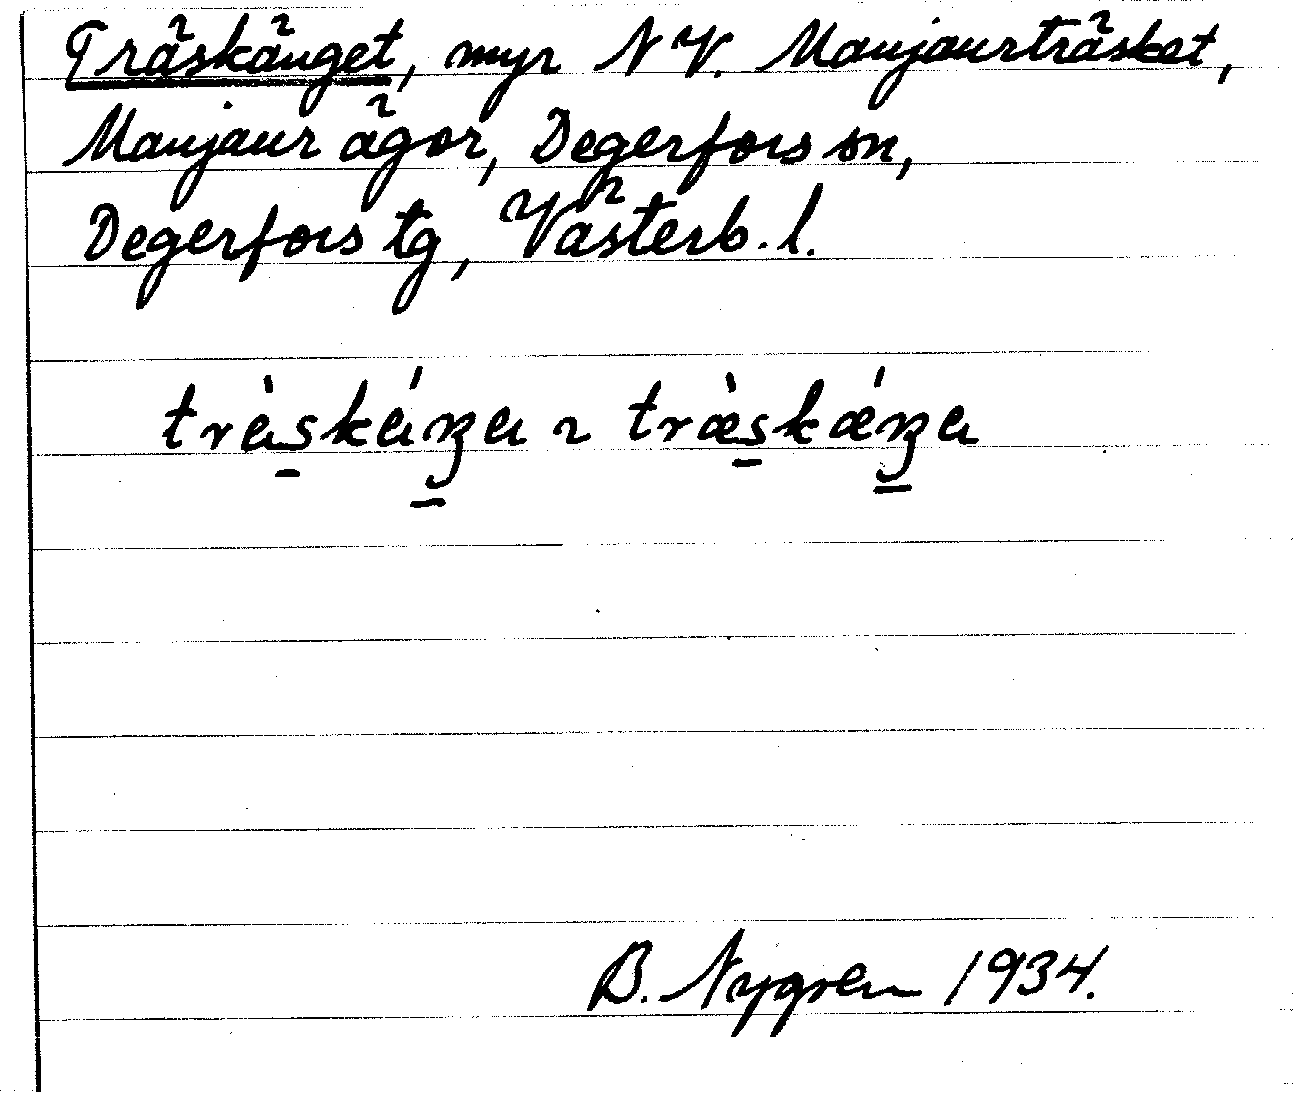 Träskänget, myr NV. Manjaurträsket,
Manjaur ägor, Degerfors sn,
Degerfors tg, Västerb. l.
B. Nygren 1934.